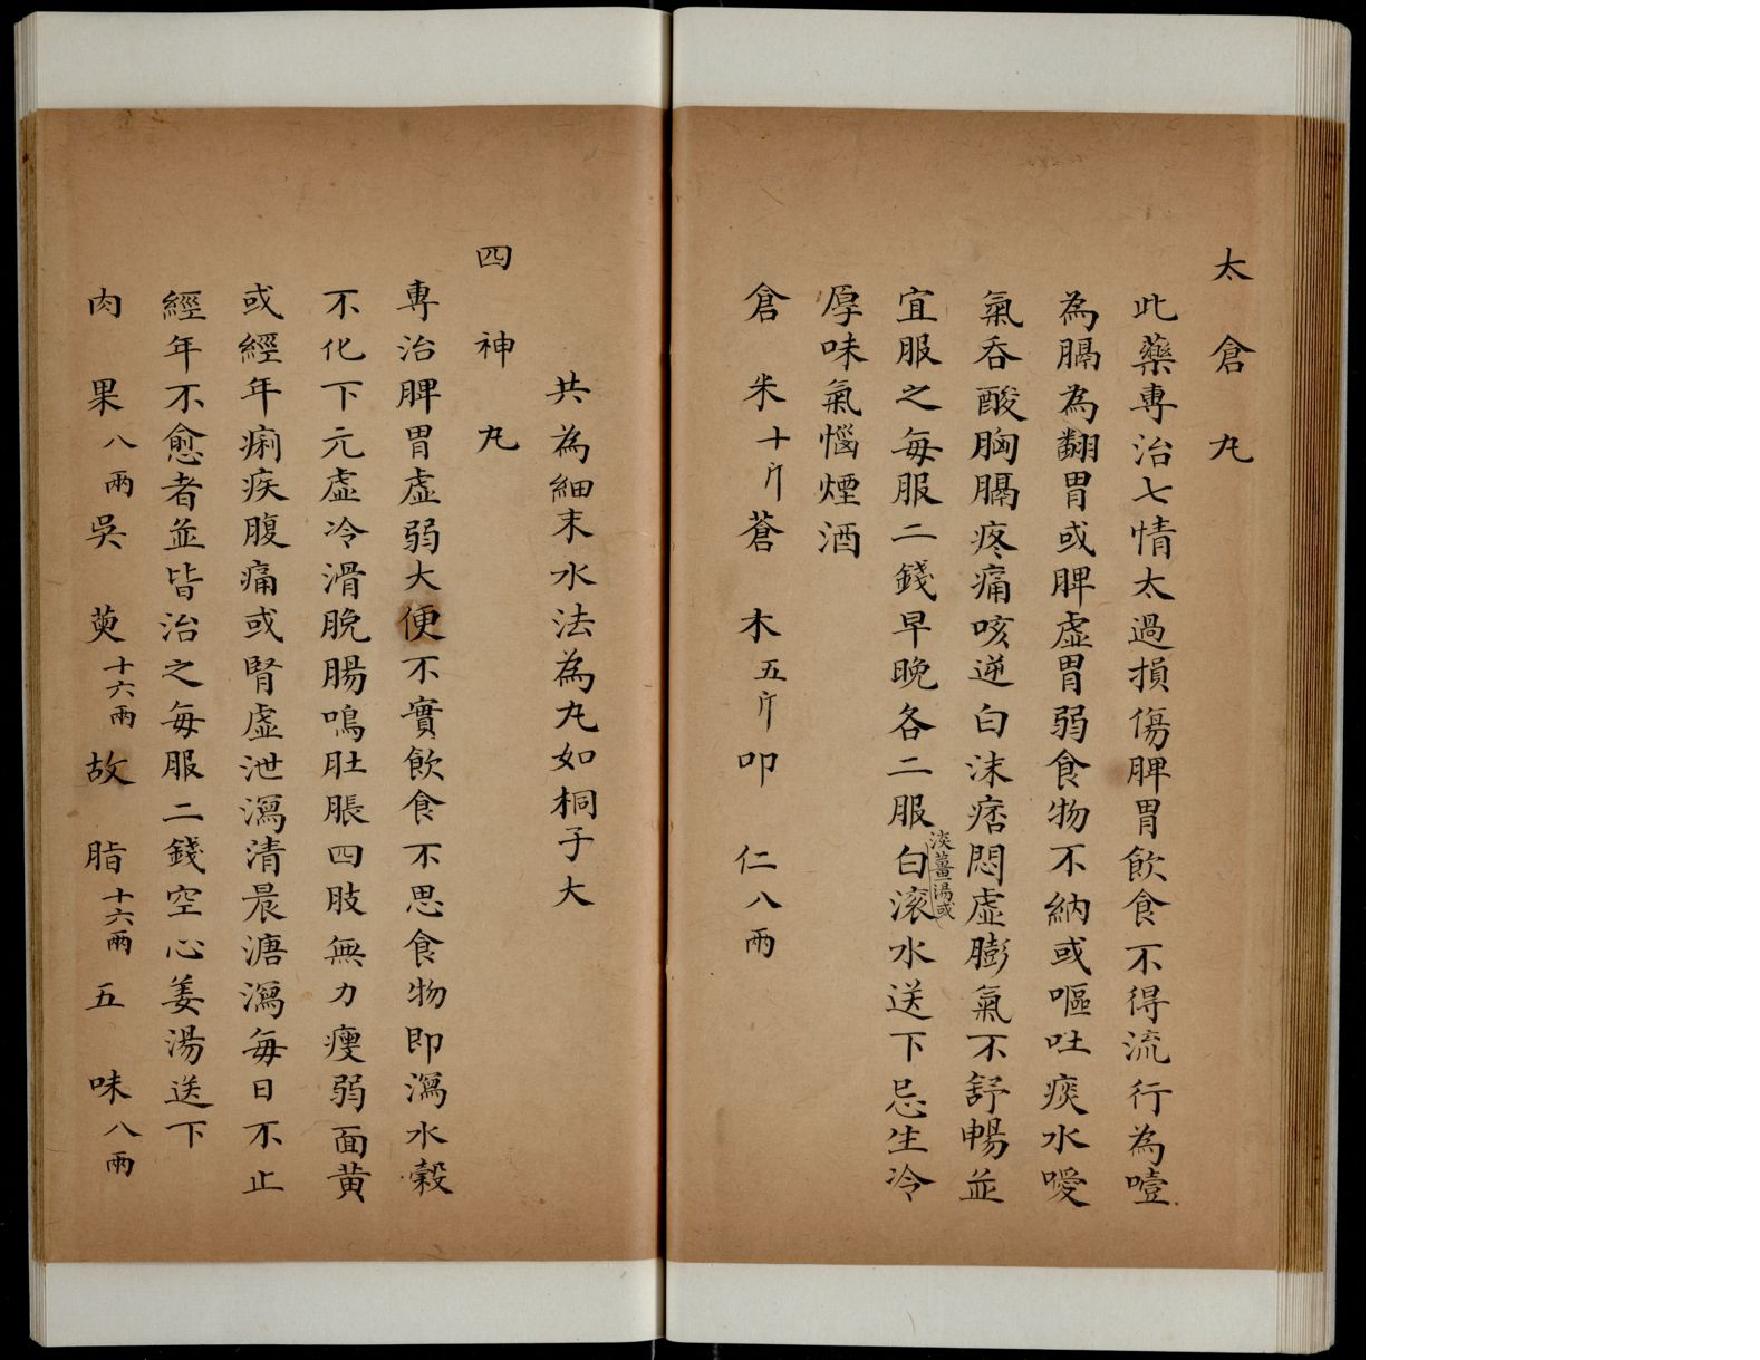 太倉丸
此藥專治七情太過損傷脾胃飲食不得流行為噎
為膈為翻胃或脾虛胃弱食物不納或嘔吐痰水噯
氣吞酸胸膈疼痛咳逆白沫痞悶虛膨氣不舒暢並
宜服之每服二錢早晚各二服白滾水送下忌生冷
淡薑湯或
厚味氣惱煙酒
倉米十斤蒼木五斤叩仁八兩
共為細末水法為丸如桐子大
四神丸
專治脾胃虛弱大便不實飲食不思食物即瀉水穀
不化下元虛冷滑脫腸鳴肚脹四肢無力瘦弱面黃
或經年痢疾腹痛或腎虛泄瀉清晨溏瀉每日不止
經年不愈者並皆治之每服二錢空心姜湯送下
肉果八兩吳萸十六兩故脂十六兩五味八兩